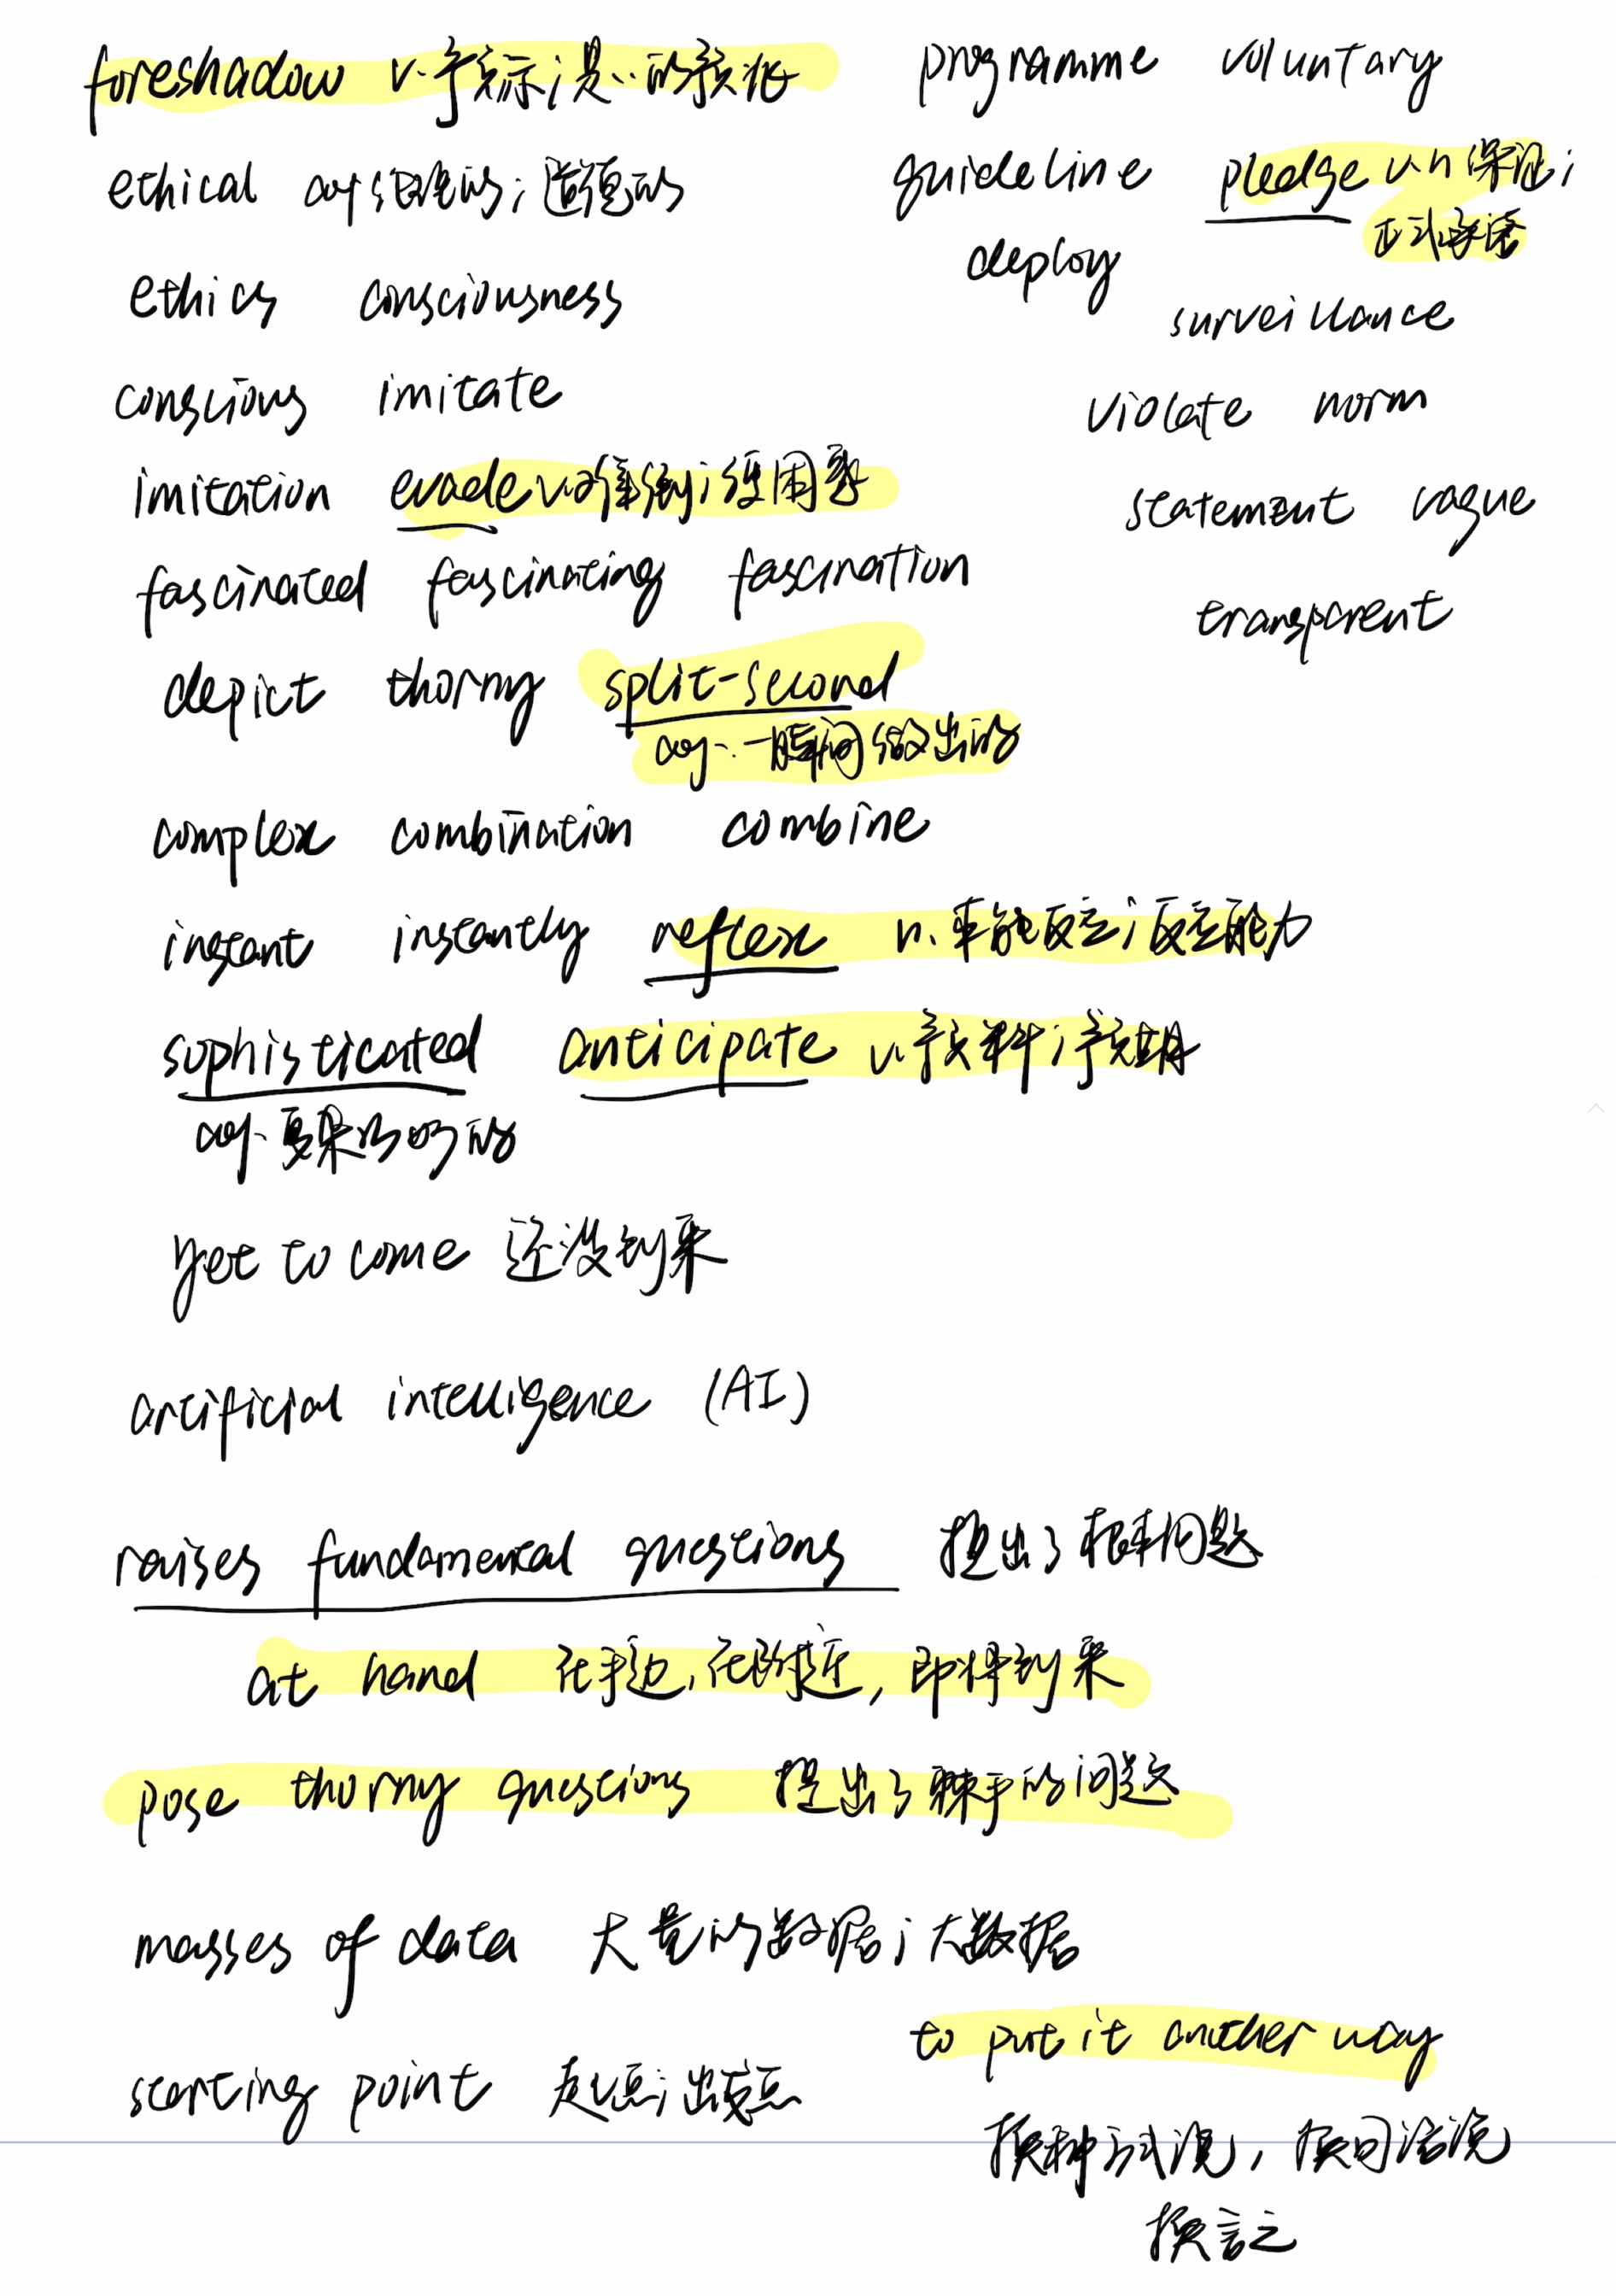 foreshadow v.预示；是..的预兆
ethical adj.伦理的；道德的
ethics consciousness
conscious imitate
imitation evade v.
fascinated fascinating fascination
depict thorny split-second
adj..一瞬间做出的
complex combination combine
instant instantly reflex n.本能反应；反应能力
sophisticated anticipate v.预料；预期
adj.复杂巧妙的
yet to come 还没到来
artificial intelligence (AI)
raises fundamental questions 提出了根本问题
at hand 在手边,在附近,即将到来
pose thorny questions 提出了棘手的问题
masses of data 大量的数据；大数据
starting point 起点；出发点
programme voluntary
guideline pledge v.n保证；
正式承诺
deploy
surveillance
violate norm
statement vague
transparent
to put it another way
换种方式说,换句话说
换言之